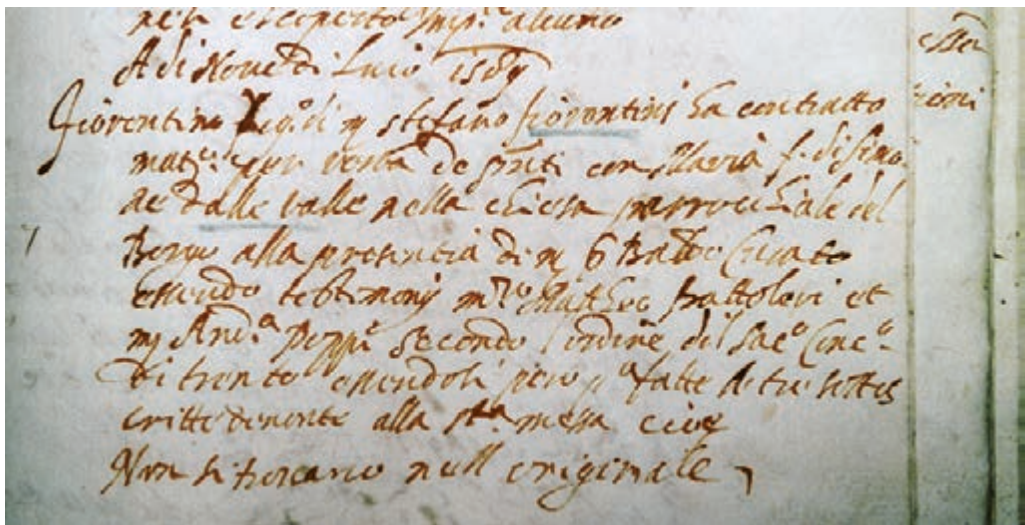 ne è scoperto Imp.to alcuno
A di Nove di Luio 1589
Fiorentino fig.lo di m stefano fiorentini ha contratto
mat.o per verba de pnti con Maria f. di simo
ne dalle valle nella chiesa parrochiale del
Borgo alla presentia di m Batta
essendo testimonij m.ro Mattheo et
mj And.a secondo l ordine dil Sac.o Conc.o
di trento essendoli pero p.a fatte le tre sottos
critte denonte alla st.a messa cioe
Non si trovano nell originale